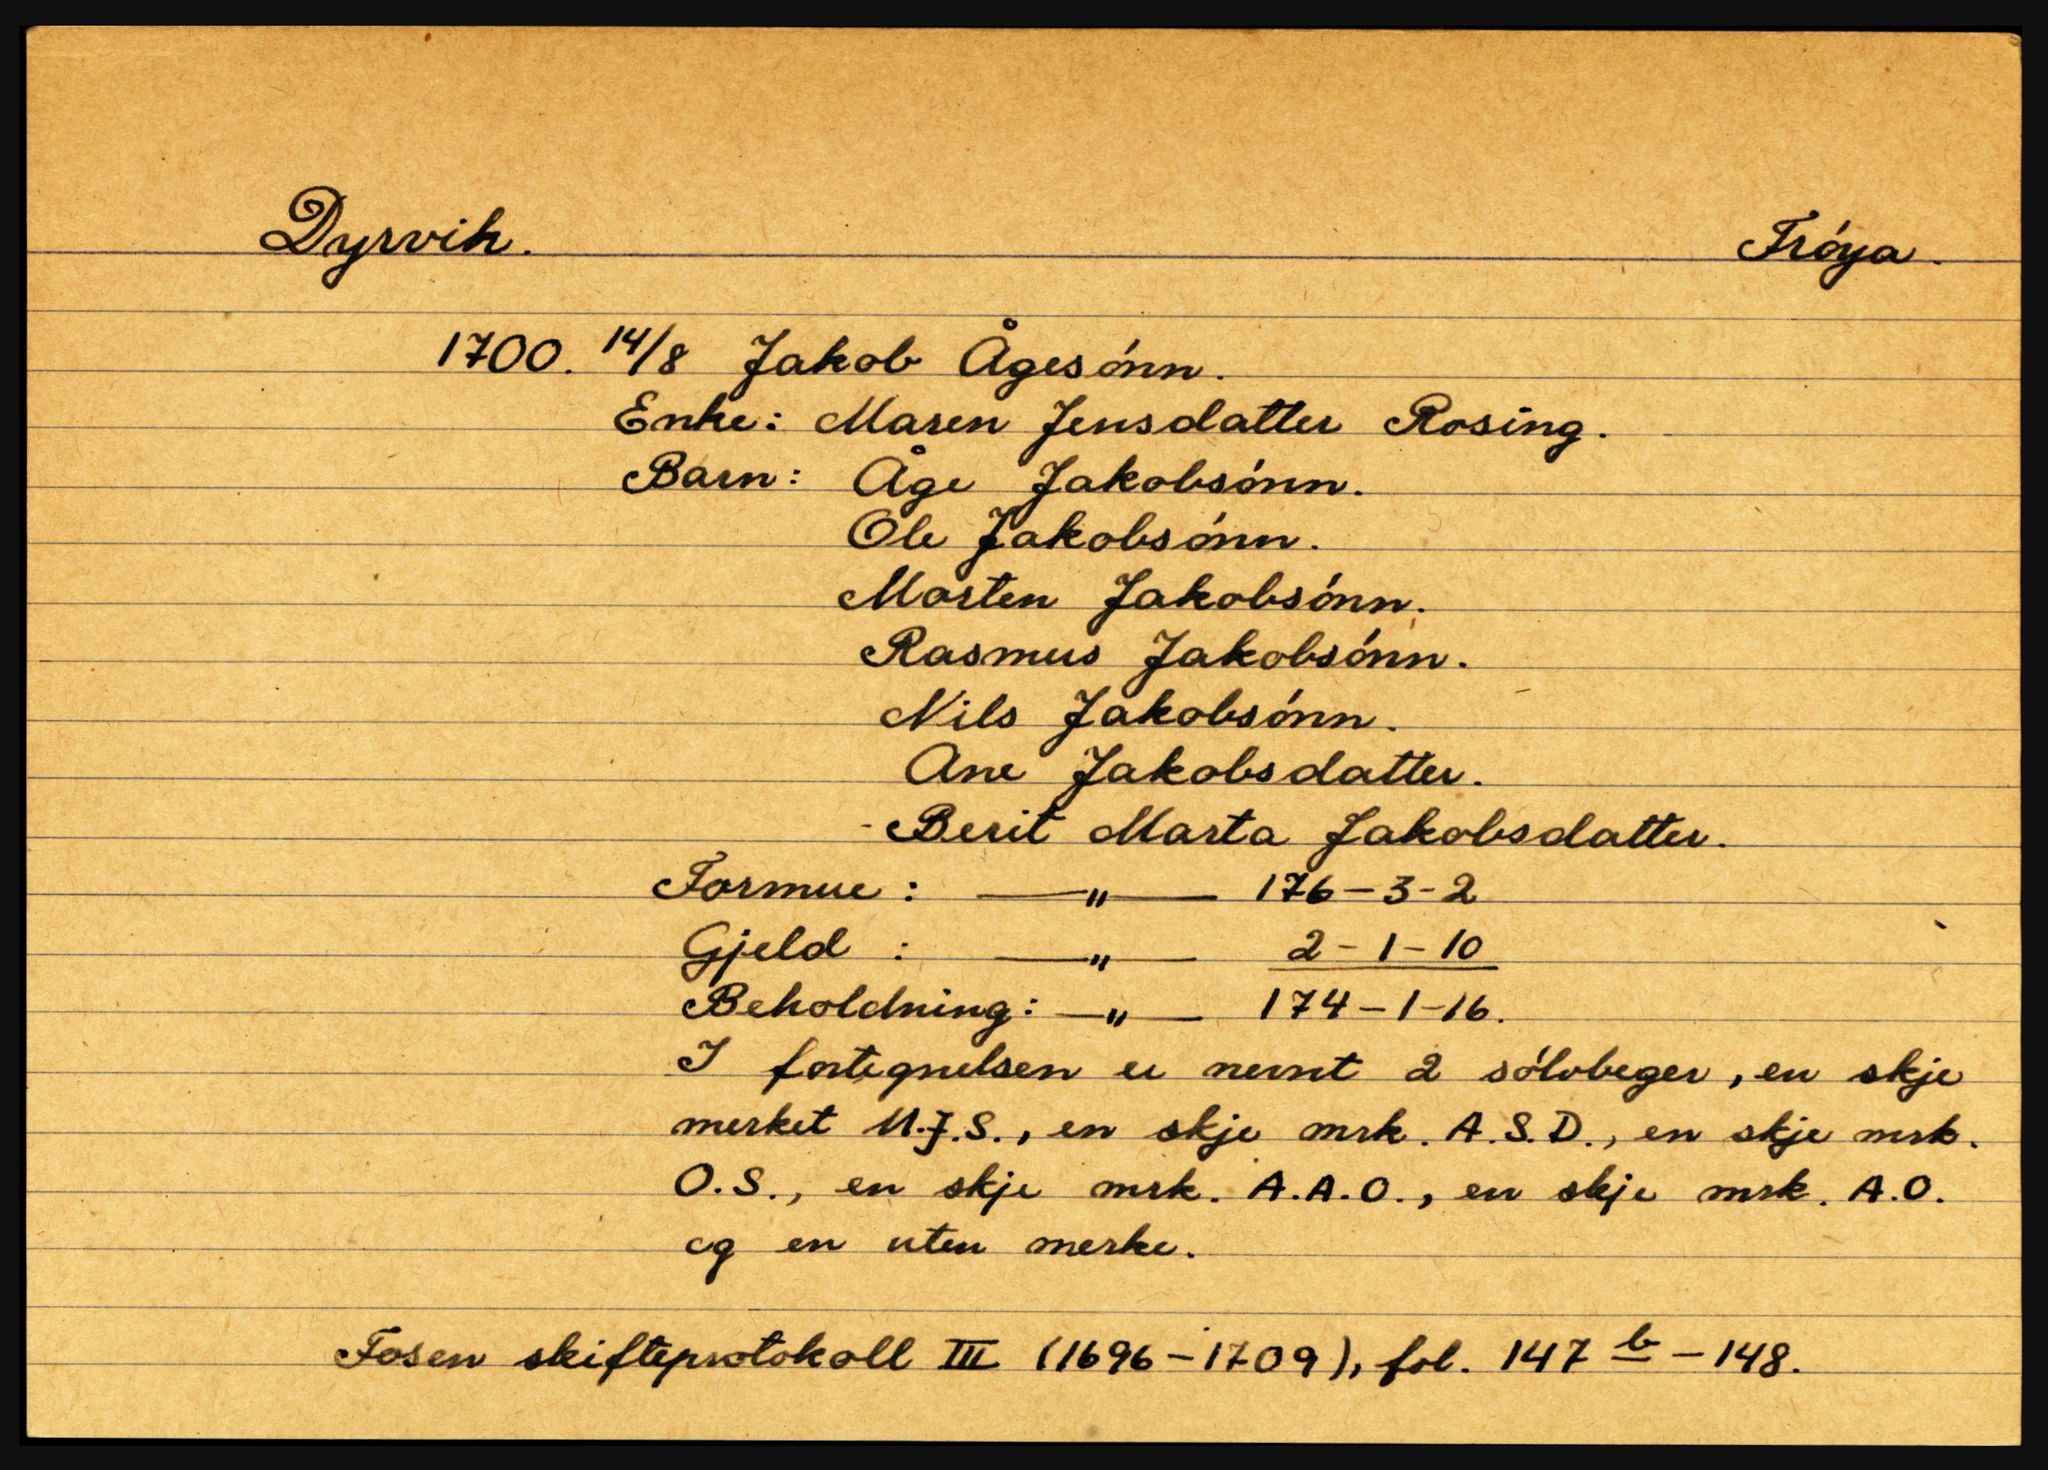 Dyrvik. Fróya.
1700. 14/8 Jakob Ågesónn.
Enke: Maren Jensdatter Rosing.
Barn: Åge Jakobsónn.
Ole Jakobsónn.
Morten Jakobsónn.
Rasmus Jakobsónn.
Nils Jakobsónn.
Ane Jakobsdatter.
Berit Marta Jakobsdatter.
Formue: —"— 176-3-2
Gjeld : —"— 2-1-10
Beholdning: —"— 174-1-16.
I fortegnelsen er nevnt 2 sólvbeger, en skje
merket M.J.S., en skje mrk. A.S.D., en skje mrk.
O.S., en skje mrk. A.A.O., en skje mrk. A.O.
og en uten merke.
Fosen skifteprotokoll III (1696-1709), fol. 147 b - 148.